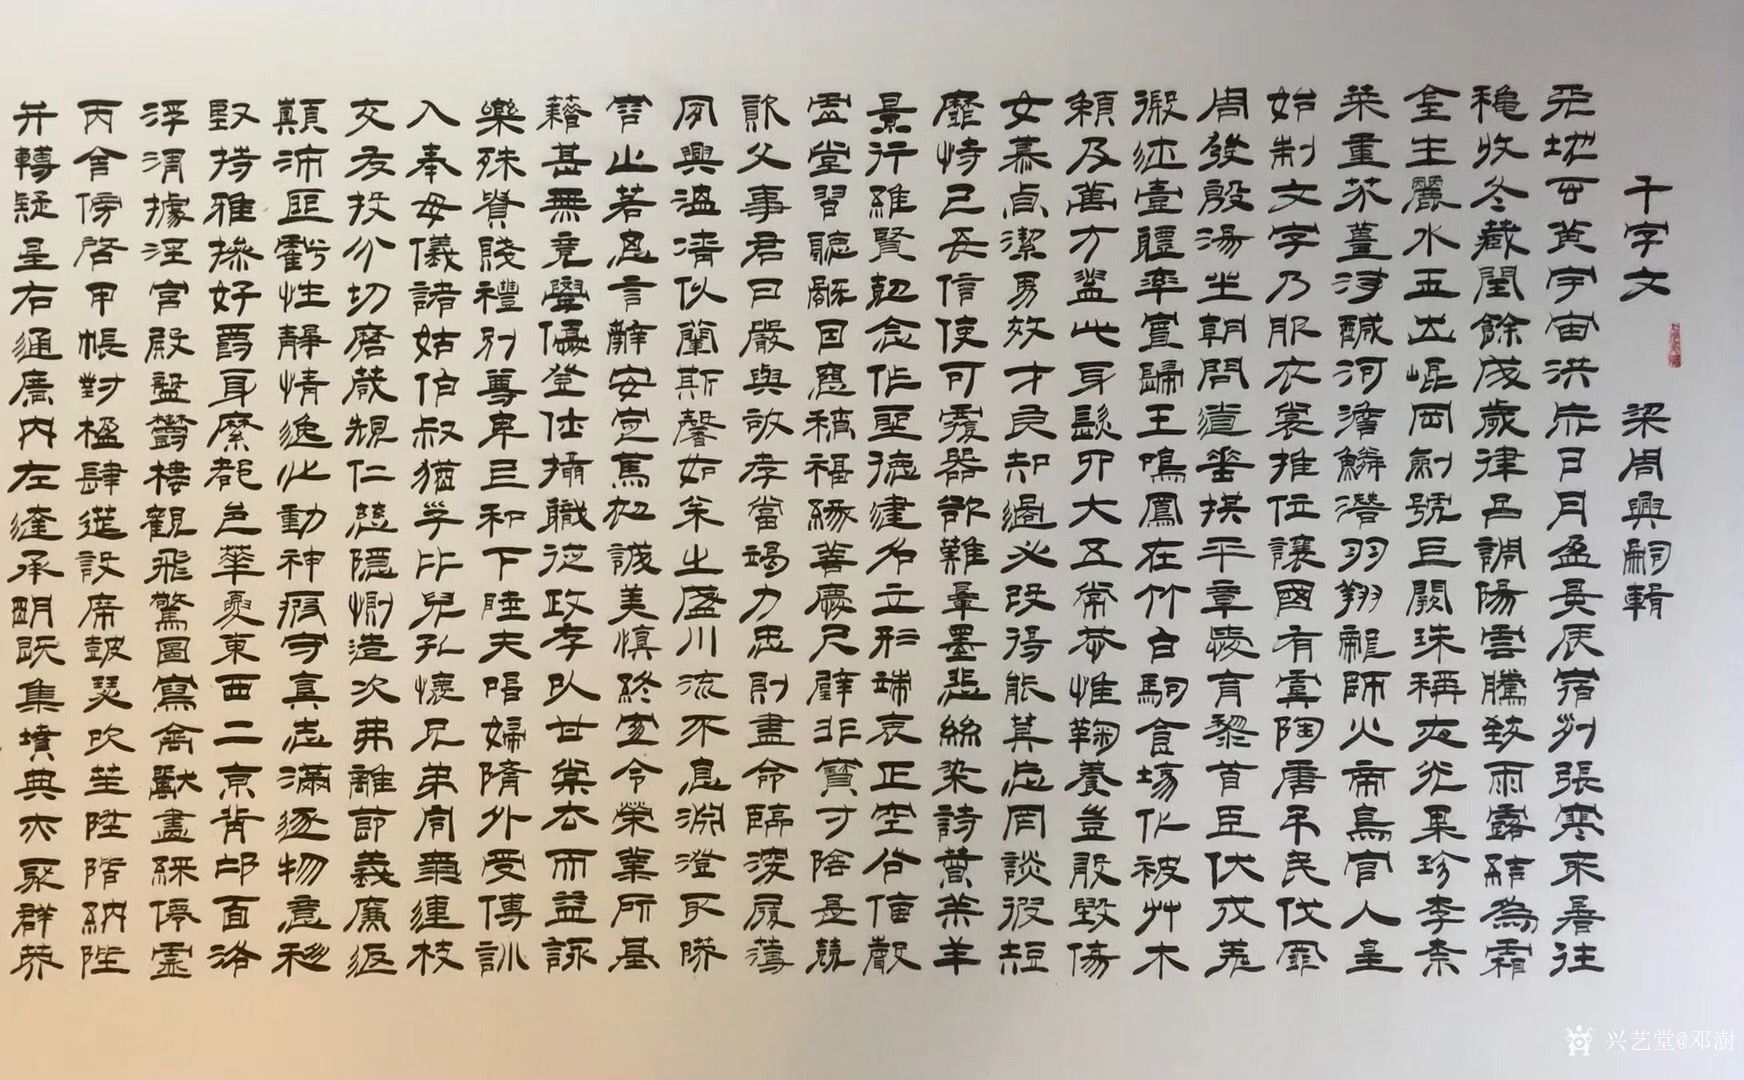 千字文 梁周興嗣輯
天地玄黄宇宙洪荒日月盈昃辰宿列張寒來暑往
龝收冬藏閏餘成歲律吕調陽雲騰致雨露結為霜
金生麗水玉出崐岡劍號巨闕珠稱夜光果珍李柰
菜重芥薑海鹹河澹鱗潛羽翔龍師火帝鳥官人皇
始制文字乃服衣裳推位讓國有虞陶唐弔民伐罪
周發殷湯坐朝問道垂拱平章愛育黎首臣伏戎羌
遐迩壹體率賓歸王鳴鳳在竹白駒食場化被艸木
賴及萬方蓋此身髮四大五常恭惟鞠養豈敢毀傷
女慕貞潔男效才良知過必改得能莫忘罔談彼短
靡恃己長信使可覆器欲難量墨悲絲染詩讚羔羊
景行維賢剋念作聖德建名立形端表正空谷傳聲
虛堂習聽禍因惡積福緣善慶尺璧非寶寸陰是競
資父事君曰嚴與敬孝當竭力忠則盡命臨深履薄
夙興溫凊似蘭斯馨如松之盛川流不息淵澄取暎
容止若思言辭安定篤初誠美慎終宜令榮業所基
籍甚無竟學優登仕攝職從政存以甘棠去而益詠
樂殊貴賤禮別尊卑上和下睦夫唱婦隨外受傅訓
入奉母儀諸姑伯叔猶子比兒孔懷兄弟同氣連枝
交友投分切磨箴規仁慈隱惻造次弗離節義廉退
顛沛匪虧性靜情逸心動神疲守真志滿逐物意移
堅持雅操好爵自縻都邑華夏東西二京背邙面洛
浮渭據涇宮殿盤鬱樓觀飛驚圖寫禽獸畫綵仙靈
丙舍傍啓甲帳對楹肆筵設席鼓瑟吹笙陞階納陛
弁轉疑星右通廣内左達承明既集墳典亦聚群英
兴艺堂@邓澍